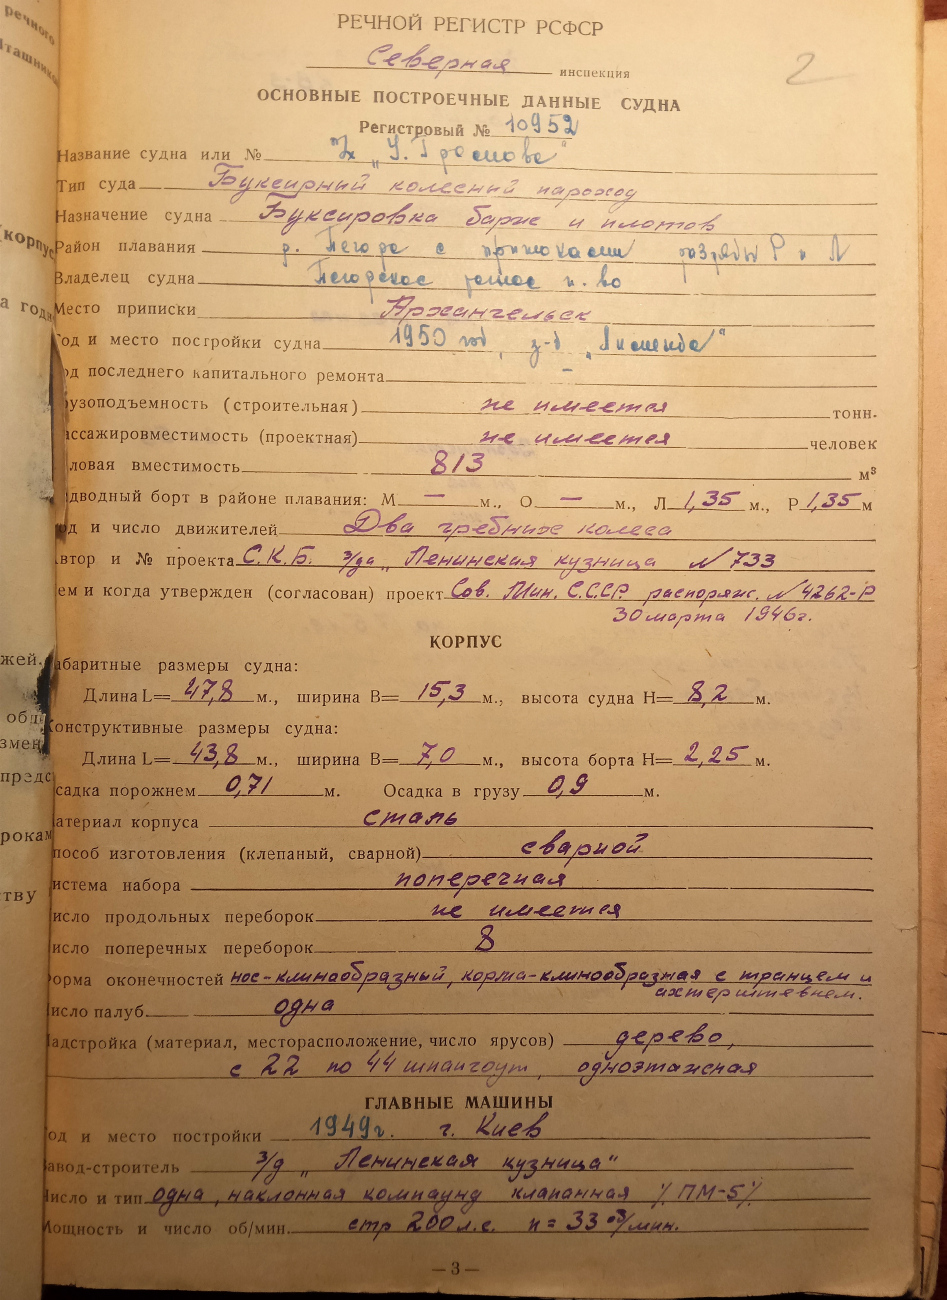 речного
2
РЕЧНОЙ РЕГИСТР РСФСР
Северная инспекция
ОСНОВНЫЕ ПОСТРОЕЧНЫЕ ДАННЫЕ СУДНА
Регистровый № 10952
Название судна или №
Тип суда Буксирный колесный пароход
Назначение судна Буксировка барж и плотов
Район плавания р. с притоками разряды Р и Л
Владелец судна
Место приписки Архангельск
од и место постройки судна 1950 год, з-д
од последнего капитального ремонта –
узоподъемность (строительная) не имеется тонн.
ассажировместимость (проектная) не имеется человек
ловая вместимость 813 м³
дводный борт в районе плавания: М — м., О — м., Л 1,35 м., Р 1,35 м
од и число движителей Два гребных колеса
втор и № проекта С.К.Б. з/да „Ленинская кузница № 733
ем и когда утвержден (согласован) проект Сов. Мин. С.С.С.Р. распоряж. № 4262-Р
30 марта 1946г.
КОРПУС
абаритные размеры судна:
Длина L= 47,8 м., ширина В= 15,3 м., высота судна Н= 8,2 м.
онструктивные размеры судна:
Длина L= 43,8 м., ширина В= 7,0 м., высота борта Н= 2,25 м.
садка порожнем 0,71 м. Осадка в грузу 0,9 м.
атериал корпуса сталь
пособ изготовления (клепаный, сварной) сварной
истема набора поперечная
исло продольных переборок не имеется
исло поперечных переборок 8
орма оконечностей нос-клинообразный, корма-клинообразная с транцем и
ахтерштевнем.
исло палуб одна
адстройка (материал, месторасположение, число ярусов) дерево,
с 22 по 44 шпангоут, одноэтажная
ГЛАВНЫЕ МАШИНЫ
од и место постройки 1949г. г. Киев
авод-строитель з/д „Ленинская кузница"
исло и тип одна, наклонная компаунд клапанная /ПМ-5/
Мощность и число об/мин. 200 л.с. n = 33 об/мин.
— 3 —